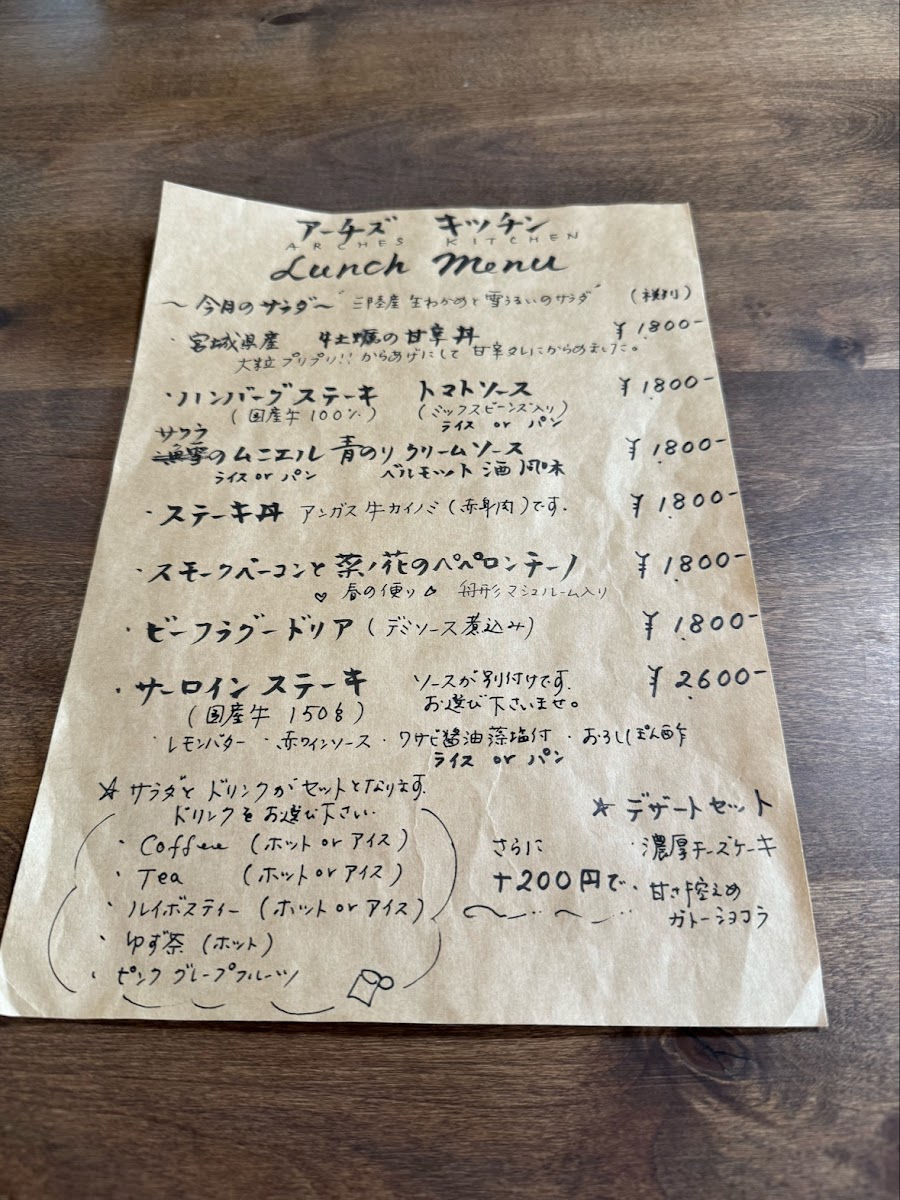 アーチズ キッチン
ARCHES KITCHEN
Lunch Menu
〜今月のサラダ〜 "三陸産 生わかめと雪うるいのサラダ" (税別)
・宮城県産 牡蠣の甘辛丼 ¥1800-
大粒プリプリ!!からあげにして甘辛タレにからめました。
・ハンバーグステーキ トマトソース ¥1800-
(国産牛100%) (ミックスビーンズ入り)
ライス or パン
サクラ
のムニエル 青のりクリームソース ¥1800-
ライス or パン ベルモット酒風味
・ステーキ丼 アンガス牛カイノミ(赤身肉)です. ¥1800-
・スモークベーコンと菜ノ花のペペロンチーノ ¥1800-
♡ 春の便り 舟形マシュルーム入り
・ビーフラグードリア (デミソース煮込み) ¥1800-
・サーロインステーキ ソースが別付けです. ¥2600-
(国産牛 150g) お選び下さいませ。
・レモンバター ・赤ワインソース ・ワサビ醤油藻塩付 ・おろしぽん酢
ライス or パン
☆ サラダとドリンクがセットとなります.
ドリンクをお選び下さい.
・Coffee (ホット or アイス)
・Tea (ホット or アイス)
・ルイボスティー (ホット or アイス)
・ゆず茶 (ホット)
・ピンクグレープフルーツ
☆ デザートセット
さらに ・濃厚チーズケーキ
+200円で ・甘さ控えめ
ガトーショコラ